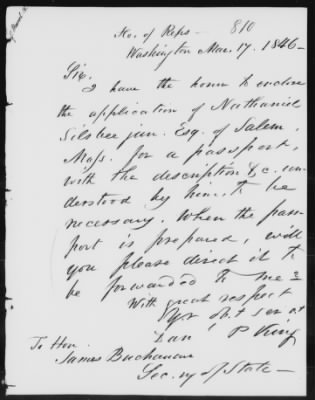 Ho. of Reps - 810
Washington Mar. 17. 1846 -
Sir.
I have the honor to enclose
the application of Nathaniel
Silsbee jun. Esq. of Salem,
Mass. for a passport,
with the description &c. un-
derstood by him to be
necessary. When the pass-
port is prepared, will
you please direct it to
be forwarded to me
With great respect
Yr ob.t Ser vt
Dan' P King
To Hon.
James Buchanan
Sec. ry of State -